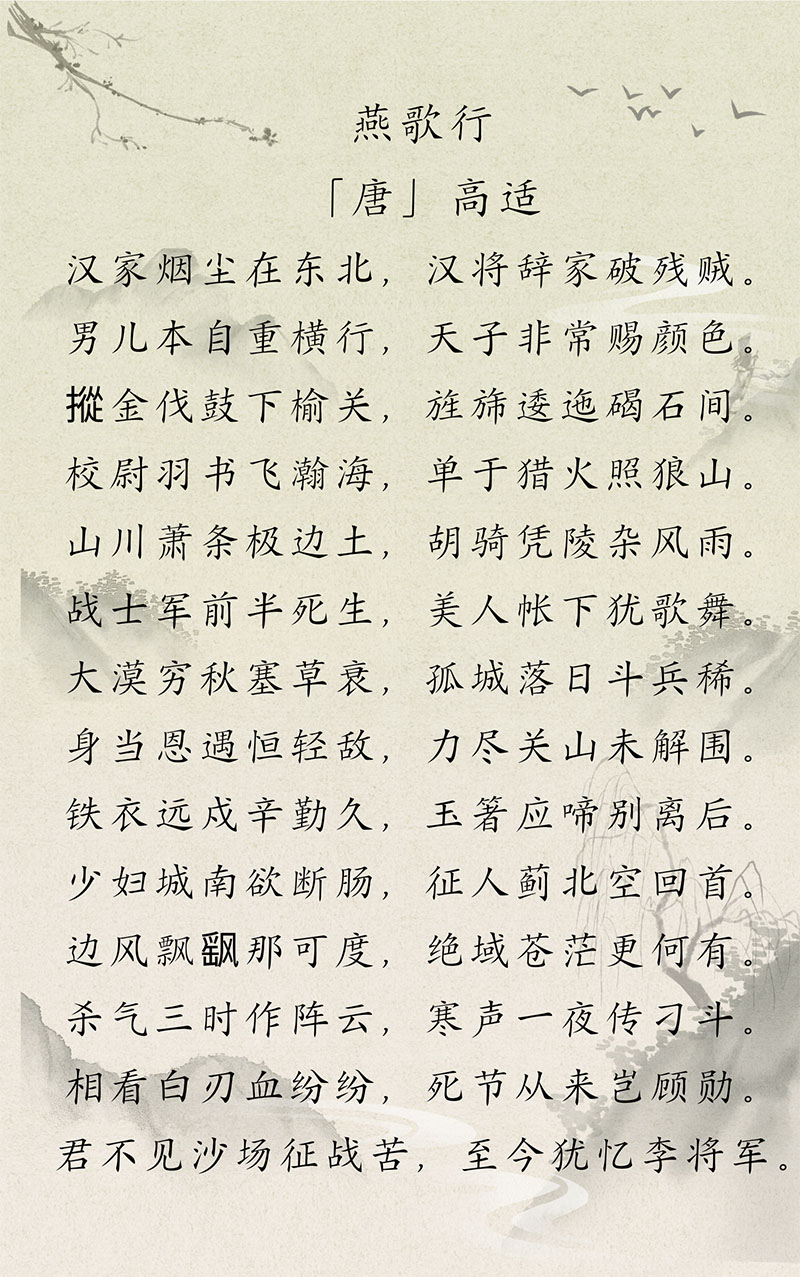 燕歌行
「唐」高适
汉家烟尘在东北，汉将辞家破残贼。
男儿本自重横行，天子非常赐颜色。
摐金伐鼓下榆关，旌旆逶迤碣石间。
校尉羽书飞瀚海，单于猎火照狼山。
山川萧条极边土，胡骑凭陵杂风雨。
战士军前半死生，美人帐下犹歌舞。
大漠穷秋塞草衰，孤城落日斗兵稀。
身当恩遇恒轻敌，力尽关山未解围。
铁衣远戍辛勤久，玉箸应啼别离后。
少妇城南欲断肠，征人蓟北空回首。
边风飘飖那可度，绝域苍茫更何有。
杀气三时作阵云，寒声一夜传刁斗。
相看白刃血纷纷，死节从来岂顾勋。
君不见沙场征战苦，至今犹忆李将军。